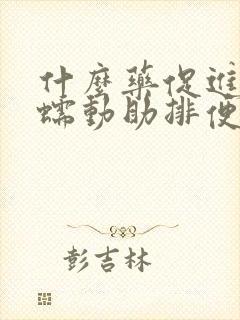 什麼藥促進
蠕動助排便
彭吉林